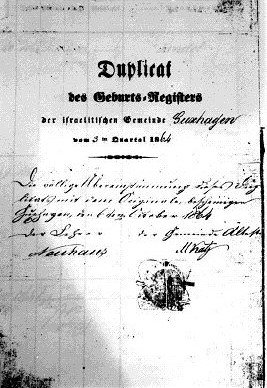 Duplicat
des Geburts-Registers
der israelitischen Gemeinde Guxhagen
vom 3 ten Quartal 1864
Die völlige Übereinstimmung dieses Dup
licats mit dem Originale bescheinigen
Guxhagen, October 1864
Der Lehrer der Gemeinde Älteste
Neuhaus M Katz